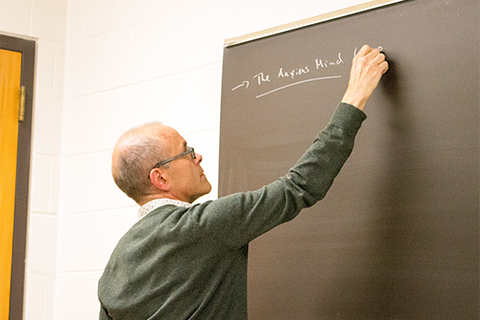 → The Anxious Mind (